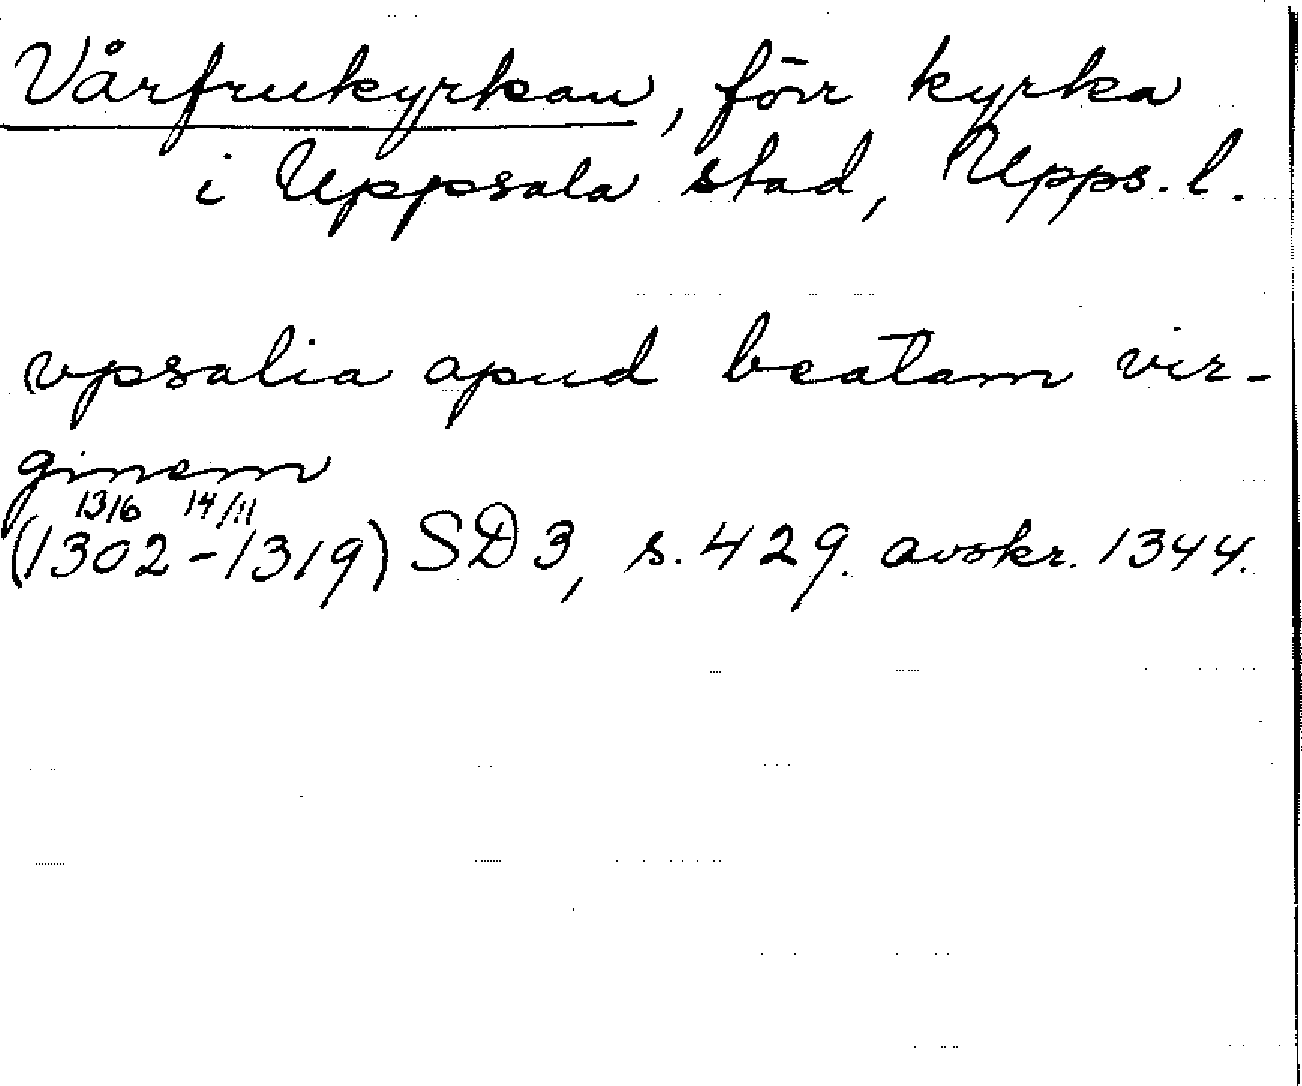 Vårfrukyrkan, förr kyrka
i Uppsala stad, Upps. l.
vpsalia apud beatam vir-
ginem
13/6 14/11
(1302-1319) SD 3, s. 429. avskr. 1344.